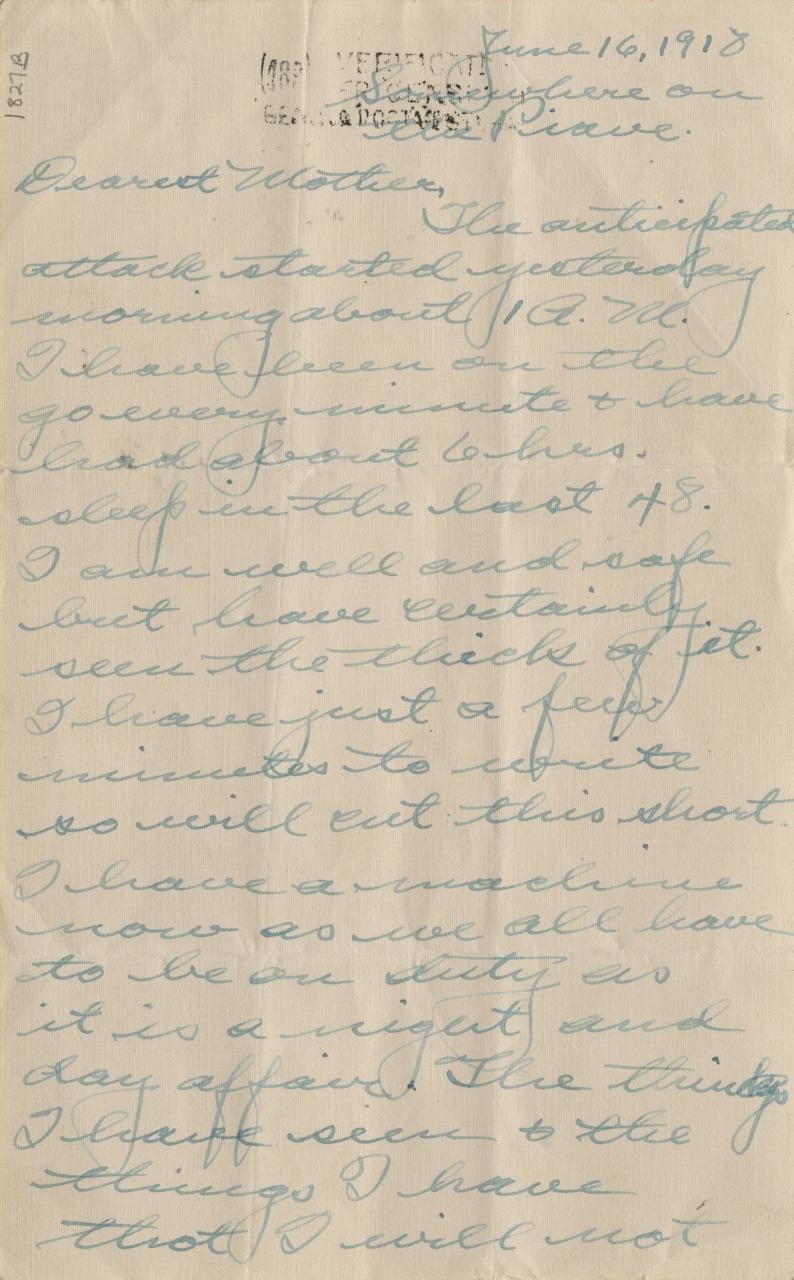 June 16, 1918
1827B
(468) VERIFICATO
PER CENSURA
Somewhere on
the Piave.
Dearest Mother,
The anticipated
attack started yesterday
morning about 1 A. M.
I have been on the
go every minute & have
had about 6 hrs.
sleep in the last 48.
I am well and safe
but have certainly
seen the thick of it.
I have just a few
minutes to write
so will cut this short.
I have a machine
now as we all have
to be on duty as
it is a night and
day affair. The things
I have seen & the
things I have
that I will not